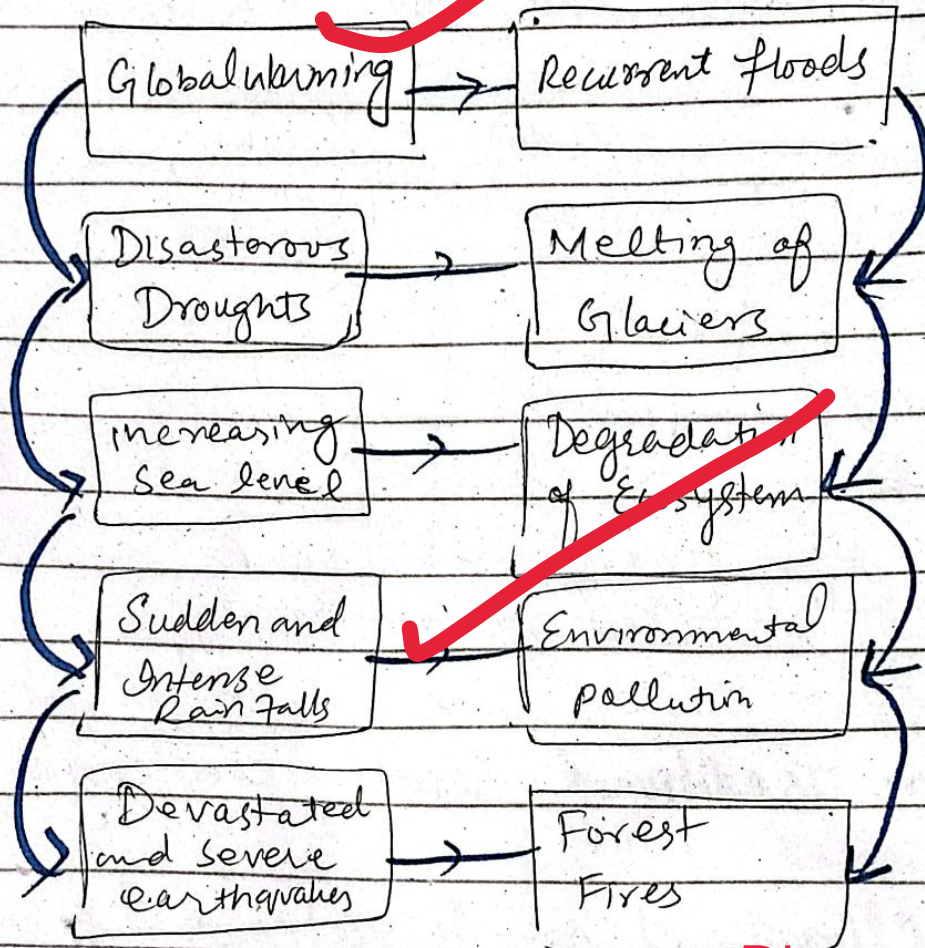 Globalwarming
Recurrent floods
Disasterous
Droughts
Melting of
Glaciers
increasing
Sea level
Degradation
of Ecosystem
Sudden and
Intense
Rain Falls
Environmental
pollution
Devastated
and severe
earthquakes
Forest
Fires